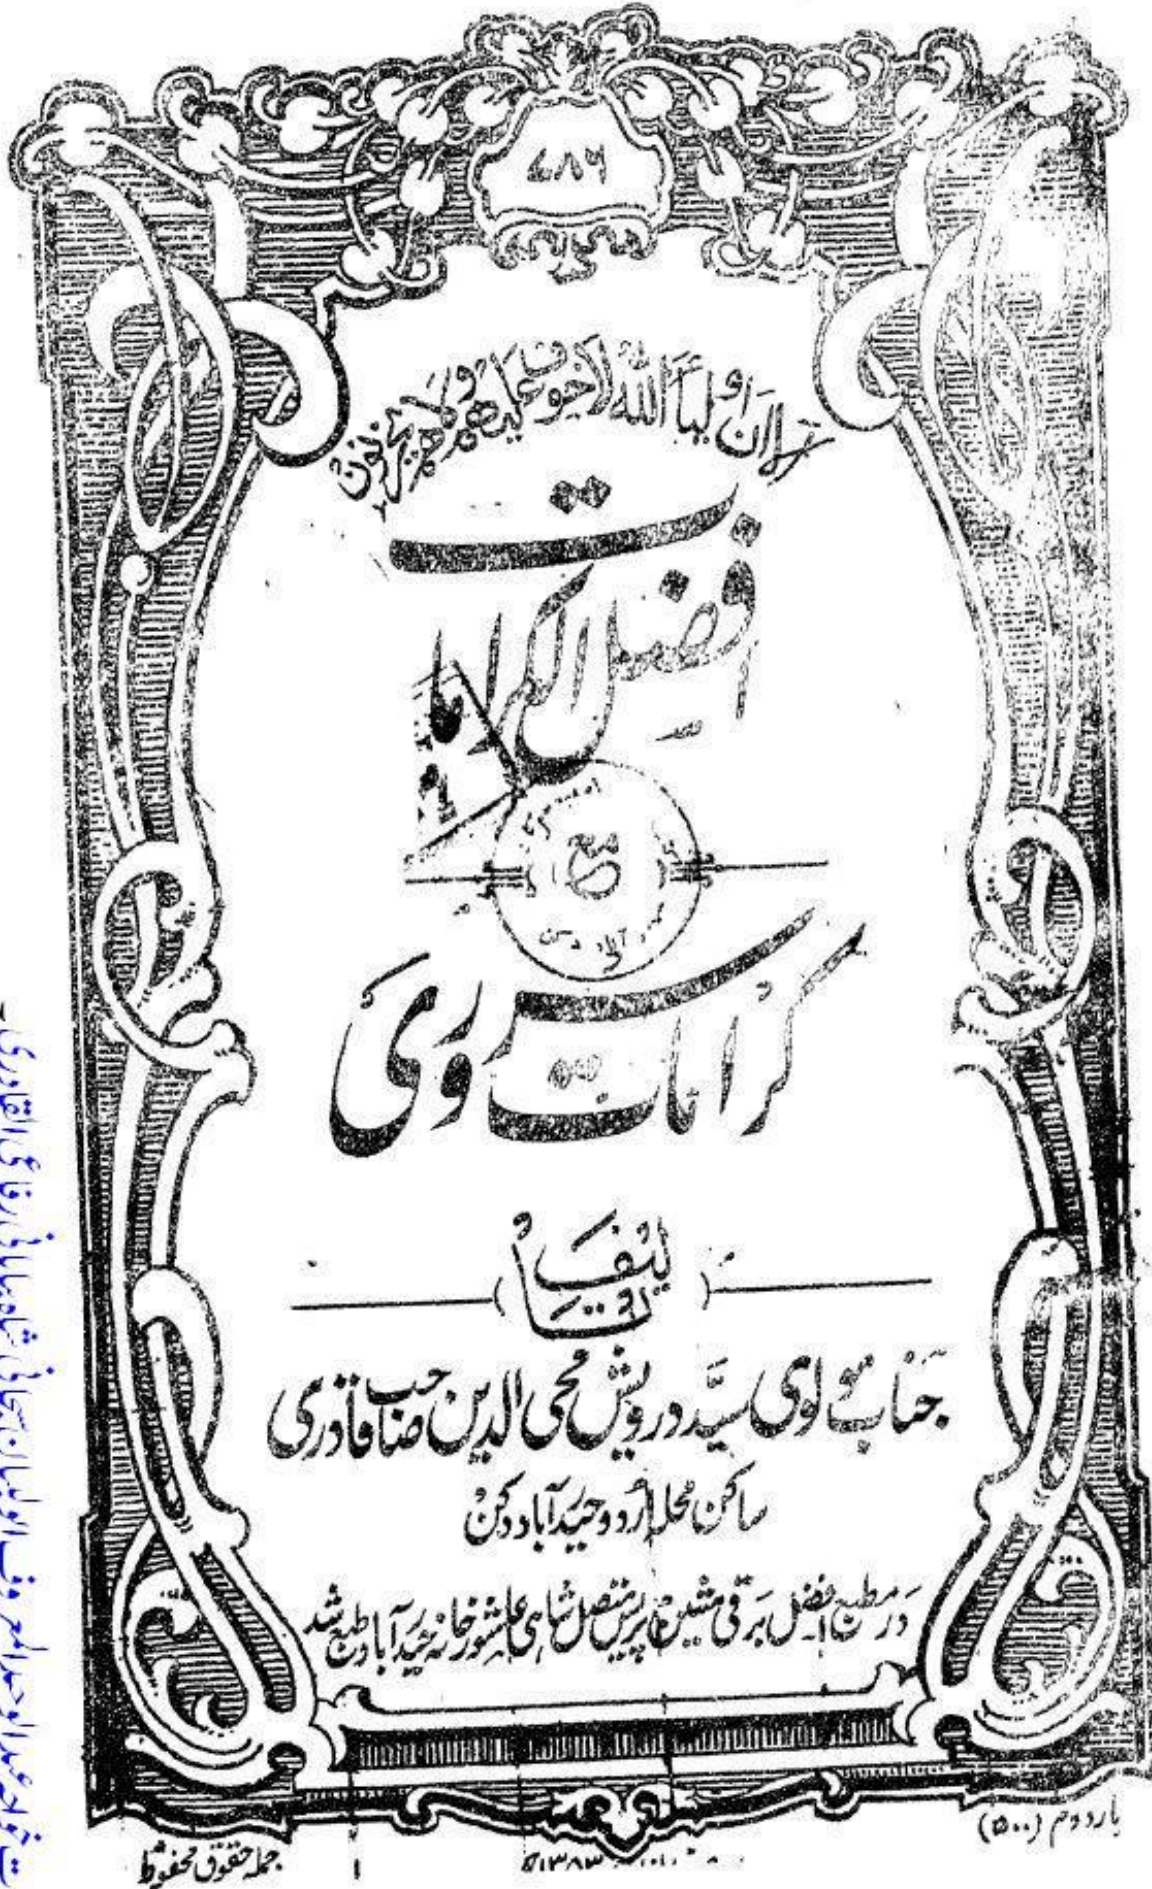 ۷۸۶
الا ان اولیاء اللہ لا خوف علیھم ولا ھم یحزنون
افضل الکرامات
مع
کرامات سروری
تالیف
جناب مولوی سید درویش محی الدین صاحب قادری
ساکن محلہ اردو حیدرآباد دکن
در مطبع افضل برقی مشین پریس متصل شاہی عاشور خانہ حیدرآباد طبع شد
بار دوم (۵۰۰)
۱۳۸۳
جملہ حقوق محفوظ